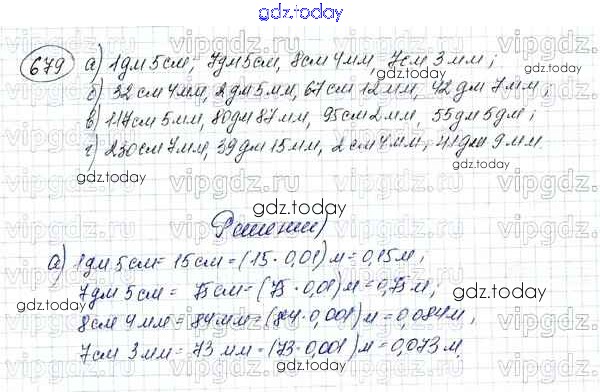 gdz.today
679 а) 1дм 5см, 7дм 5см, 8см 4мм, 7см 3мм;
б) 32см 4мм, 2дм 5мм, 67см 12мм, 42дм 7мм;
в) 117см 5мм, 80дм 87мм, 95см 2мм, 55дм 5дм;
г) 230см 7мм, 39дм 15мм, 2см 4мм, 41дм 9мм.
gdz.today
Решение
а) 1дм 5см = 15см = (15 · 0,01) м = 0,15м;
7дм 5см = 75см = (75 · 0,01) м = 0,75м;
8см 4мм = 84мм = (84 · 0,001) м = 0,084м;
7см 3мм = 73мм = (73 · 0,001) м = 0,073м.
gdz.today